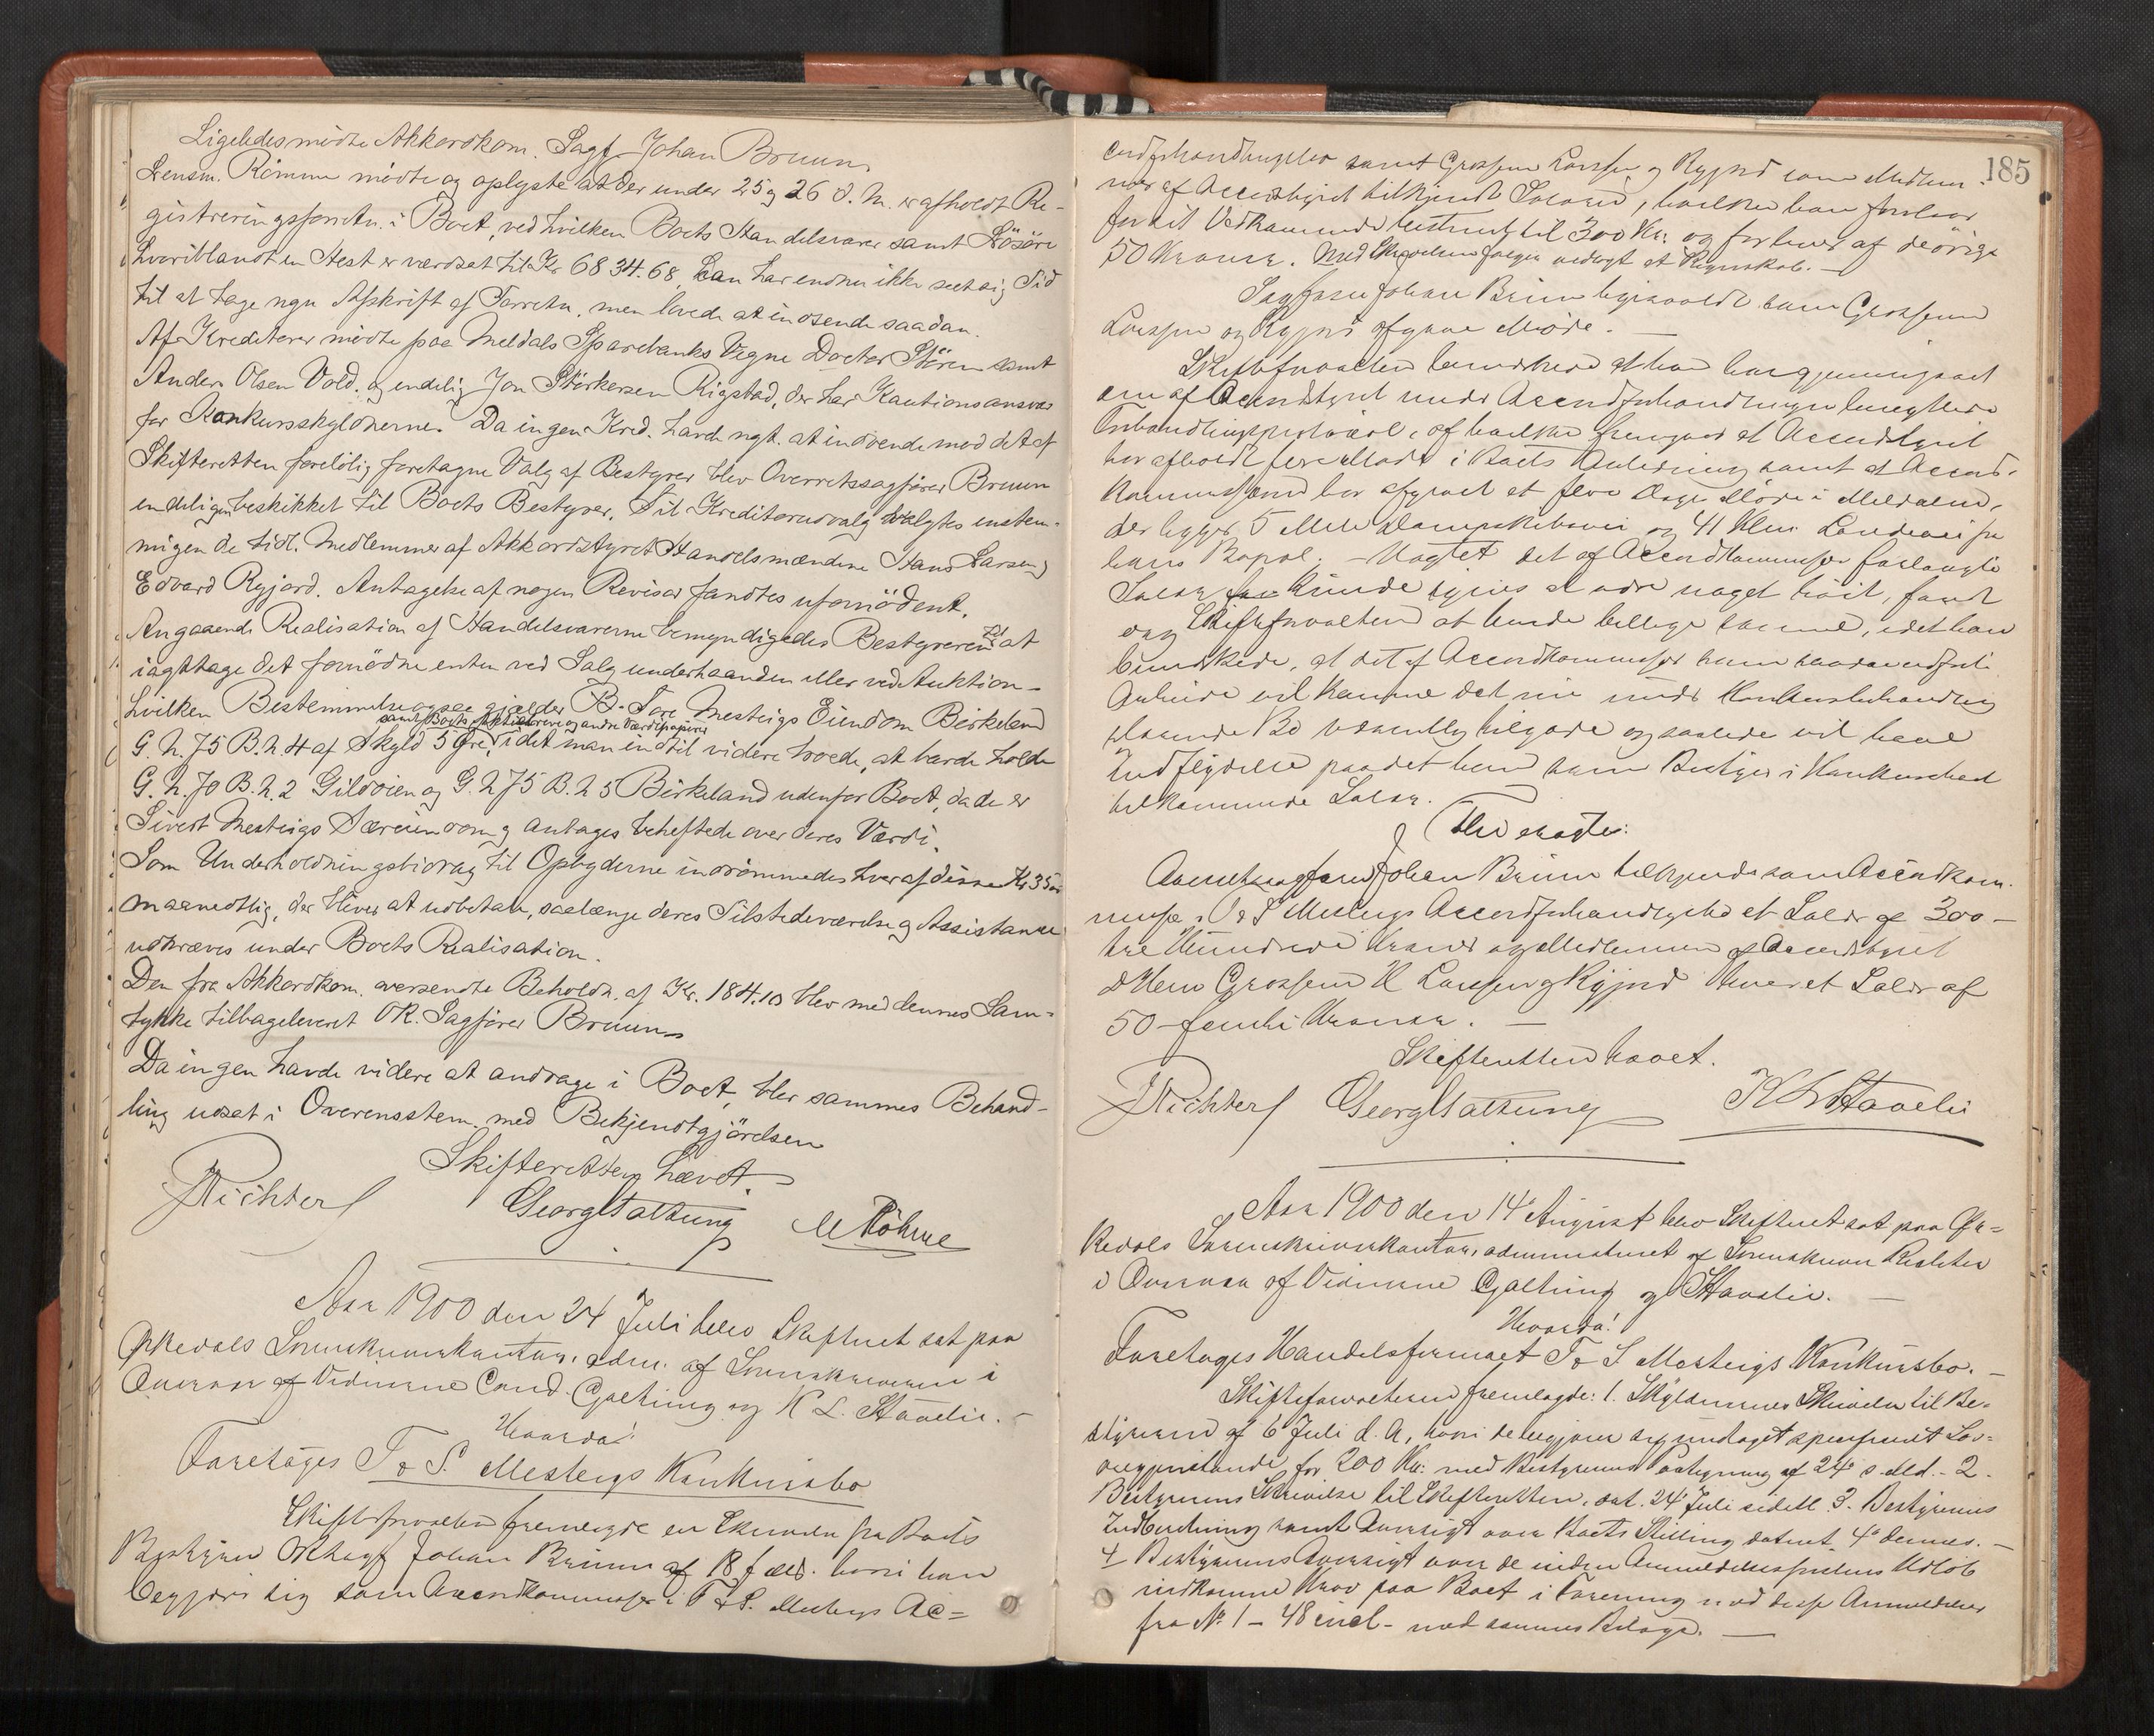 Ligeledes mødte Akkordkom. Sagf. Johan Bruun
Lensm. Römme mødte og oplyste at der under 25 og 26 d. M. er afholdt Re-
gistreringsforretn. i Boet, ved hvilken Boets Handelsvarer samt Lösöre
hvoriblandt en Hest er værdsat til Kr 6834.68, han har endnu ikke seet sig Tid
til at tage ngn Afskrift af Forretn., men lovede at indsende saadan.
Af Kreditorer mødte paa Meldals Sparebanks Vegne Doctor Stören samt
Anders Olsen Vold, og endelig Jon Störkersen Rigstad, der har Kautionsansvar
for Konkursskyldnerne. Da ingen Kred. havde ngt. at indvende mod det af
Skifteretten foreløbig foretagne Valg af Bestyrer blev Overretssagfører Bruun
endeligen beskikket til Boets Bestyrer. Til Kreditorudvalg valgtes enstem-
migen de tidl. Medlemmer af Akkordstyret Handelsmændene Hans Larsen og
Edvard Rygjord. Antagelse af nogen Revisor fandtes ufornödent.
Angaaende Realisation af Handelsvarerne bemyndigedes Bestyreren til at
iagttage det fornödne enten ved Salg underhaanden eller ved Auktion –
hvilken Bestemmelse ogsaa gjælder B. Tore Mesteigs Eiendom Birkeland
samt Boets Aktiebreve og andre Værdipapirer
G. N. 75 B. N. 4 af Skyld 5 Øre, idet man indtil videre troede, at burde holde
G. N. 70 B. N. 2 Gildöien og G. N 75 B. N 5 Birkeland udenfor Boet, da de er
Sivert Mesteigs Særeiendom og antages beheftede over deres Værdi.
Som Underholdningsbidrag til Opbyderne indrömmedes hver af disse Kr 35.00
maanedlig, der bliver at udbetale, saalænge deres Tilstedeværelse og Assistance
udkræves under Boets Realisation.
Den fra Akkordkom. oversendte Beholdn. af Kr. 184.10 blev med dennes Sam-
tykke tilbageleveret OR. Sagfører Bruun
Da ingen havde videre at andrage i Boet, blev sammes Behand-
ling udsat i Overensstem. med Bekjendtgjörelsen
Skifteretten hævet.
Richter Georg Galtung M Röhme
Aar 1900 den 24 Juli blev Skifteret sat paa
Orkedals Sorenskriverkontor, adm. af Sorenskriveren i
Overvær af Vidnerne Cand. Galtung og K L. Stavlie. –
Hvorda!
Foretoges T & S. Mesteigs Konkursbo
Skifteforvalteren fremlagde en Skrivelse fra Boets
Bestyrer ORsagf Johan Bruun af 18 ds. hvori han
begjærer sig som Accordkommissær i T & S. Mesteigs Ac=
185
cordforhandlingsbo samt Grosserer Larssen og Rygjord som Medlem-
mer af Accordstyret tilkjendt Salær, hvilket han foreslaar
for sit Vedkommende bestemt til 300 Kr. og for hver af de övrige
50 Kroner. Med Skrivelsen følger vedlagt et Regnskab. –
Sagfører Johan Bruun ligesom Grosserer
Larssen og Rygjord afgave Møde. –
Skifteforvalteren bemærkede at han har gjennemgaaet
den af Accordstyret under Accordforhandlingen benyttede
Forhandlingsprotokol, af hvilken fremgaar at Accordstyret
har afholdt flere Møder i Boets Anledning samt at Accord-
kommissæren har afgivet et flere Dages Møde i Meldalen,
der ligger 5 Mile Dampskibsvei og 41 Klm Landevei fra
hans Bopæl. – Uagtet det af Accordkommissær forlangte
Salær kunde synes at være noget høit, fandt
dog Skifteforvalteren at burde billige samme, idet han
bemærkede, at det af Accordkommissær saaledes udførte
Arbeide vil komme det nu under Konkursbehandling
staaende Bo væsentlig tilgode og saaledes vil have
Indflydelse paa det ham som Bestyrer i Konkursboet
tilkommende Salær.
Thi eragtes:
Overretssagfører Johan Bruun tilkjendes som Accordkom-
missær i T & S Mesteigs Accordforhandlingsbo et Salær af 300 –
tre Hundrede Kroner og Medlemmerne af Accordstyret
DHerrer Grosserer H Larssen og Rygjord hver et Salær af
50 – femti Kroner. –
Skifteretten hævet.
Richter Georg Galtung K L Stavlie
Aar 1900 den 14de August blev Skifteret sat paa Or=
kedals Sorenskriverkontor, administreret af Sorenskriver Richter
i Overvær af Vidnerne Galtung og Stavlie. –
Hvorda!
Foretoges Handelsfirmaet T & S Mesteigs Konkursbo. –
Skifteforvalteren fremlagde: 1. Skyldnernes Skrivelse til Be-
styreren af 6 Juli d. A., hvori de begjærer sig undtaget specificeret Løs-
øregjenstande for 200 Kr. med Bestyrerens Paategning af 24de s. Md. – 2.
Bestyrerens Skrivelse til Skifteretten, dat. 24 Juli sidstl. 3. Bestyrerens
Indberetning samt Oversigt over Boets Stilling dateret 4de dennes. –
4 Bestyrerens Oversigt over de inden Anmeldelsesfristens Udløb
indkomne Krav paa Boet i Forening med disse Anmeldelser
fra No 1 – 48 incl – med sammes Bilage. –